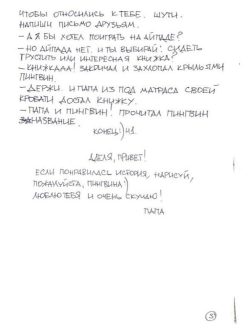 ЧТОБЫ ОТНОСИЛИСЬ К ТЕБЕ. ШУТИ.
НАПИШИ ПИСЬМО ДРУЗЬЯМ.
- А Я БЫ ХОТЕЛ ПОИГРАТЬ НА АЙПАДЕ?
- НО АЙПАДА НЕТ. И ТЫ ВЫБИРАЙ: СИДЕТЬ
ГРУСТИТЬ ИЛИ ИНТЕРЕСНАЯ КНИЖКА?
- КНИЖКАААА! ЗАКРИЧАЛ И ЗАХЛОПАЛ КРЫЛЬЯМИ
ПИНГВИН
- ДЕРЖИ. И ПАПА ИЗ ПОД МАТРАСА СВОЕЙ
КРОВАТИ ДОСТАЛ КНИЖКУ.
- ПАПА И ПИНГВИН! ПРОЧИТАЛ ПИНГВИН
НАЗВАНИЕ.
КОНЕЦ:) Ч1.
ДЕЛЯ, ПРИВЕТ!
ЕСЛИ ПОНРАВИЛАСЬ ИСТОРИЯ, НАРИСУЙ,
ПОЖАЛУЙСТА, ПИНГВИНА:)
ЛЮБЛЮ ТЕБЯ И ОЧЕНЬ СКУЧАЮ!
ПАПА